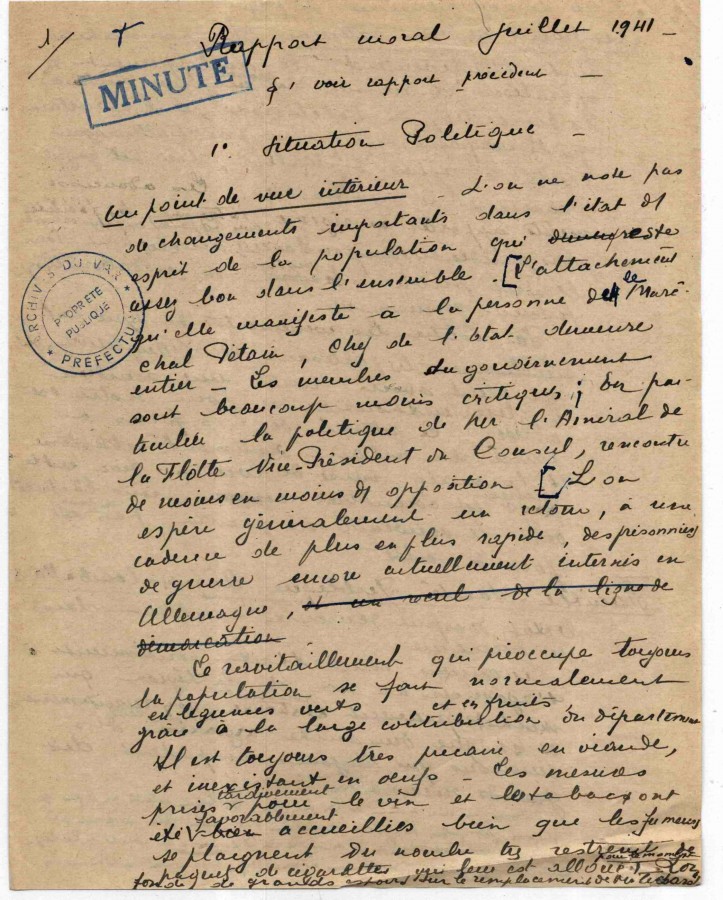 1/ Rapport moral Juillet 1941 —
MINUTE
§1 voir rapport précédent —
1° Situation Politique —
Au point de vue intérieur — L'on ne note pas
de changements importants dans l'état d'
esprit de la population qui demeure reste
assez bon dans l'ensemble. [L'attachement
qu'elle manifeste à la personne de le Maré-
chal Pétain, Chef de l'Etat demeure
entier — Les membres du gouvernement
sont beaucoup moins critiqués; En par-
ticulier la politique de l'Amiral de
la Flotte Vice-Président du Conseil, rencontre
de moins en moins d'opposition [L'on
espère généralement un retour, à une
cadence de plus en plus rapide, des prisonniers
de guerre encore actuellement internés en
Allemagne, et un recul de la ligne de
démarcation
ARCHIVES DU VAR
PROPRIETE
PUBLIQUE
PREFECTURE
Le ravitaillement qui préoccupe toujours
la population se fait normalement
en légumes verts et en fruits
grâce à la large contribution du département
Il est toujours très précaire en viande,
et inexistant en oeufs — Les mesures
tardivement
prises pour le vin et le tabac ont
favorablement
été bien accueillies bien que les fumeurs
se plaignent du nombre très restreint de
pour le moment
paquets de cigarettes qui leur est alloué. L'on
fonde de grands espoirs sur le remplacement de